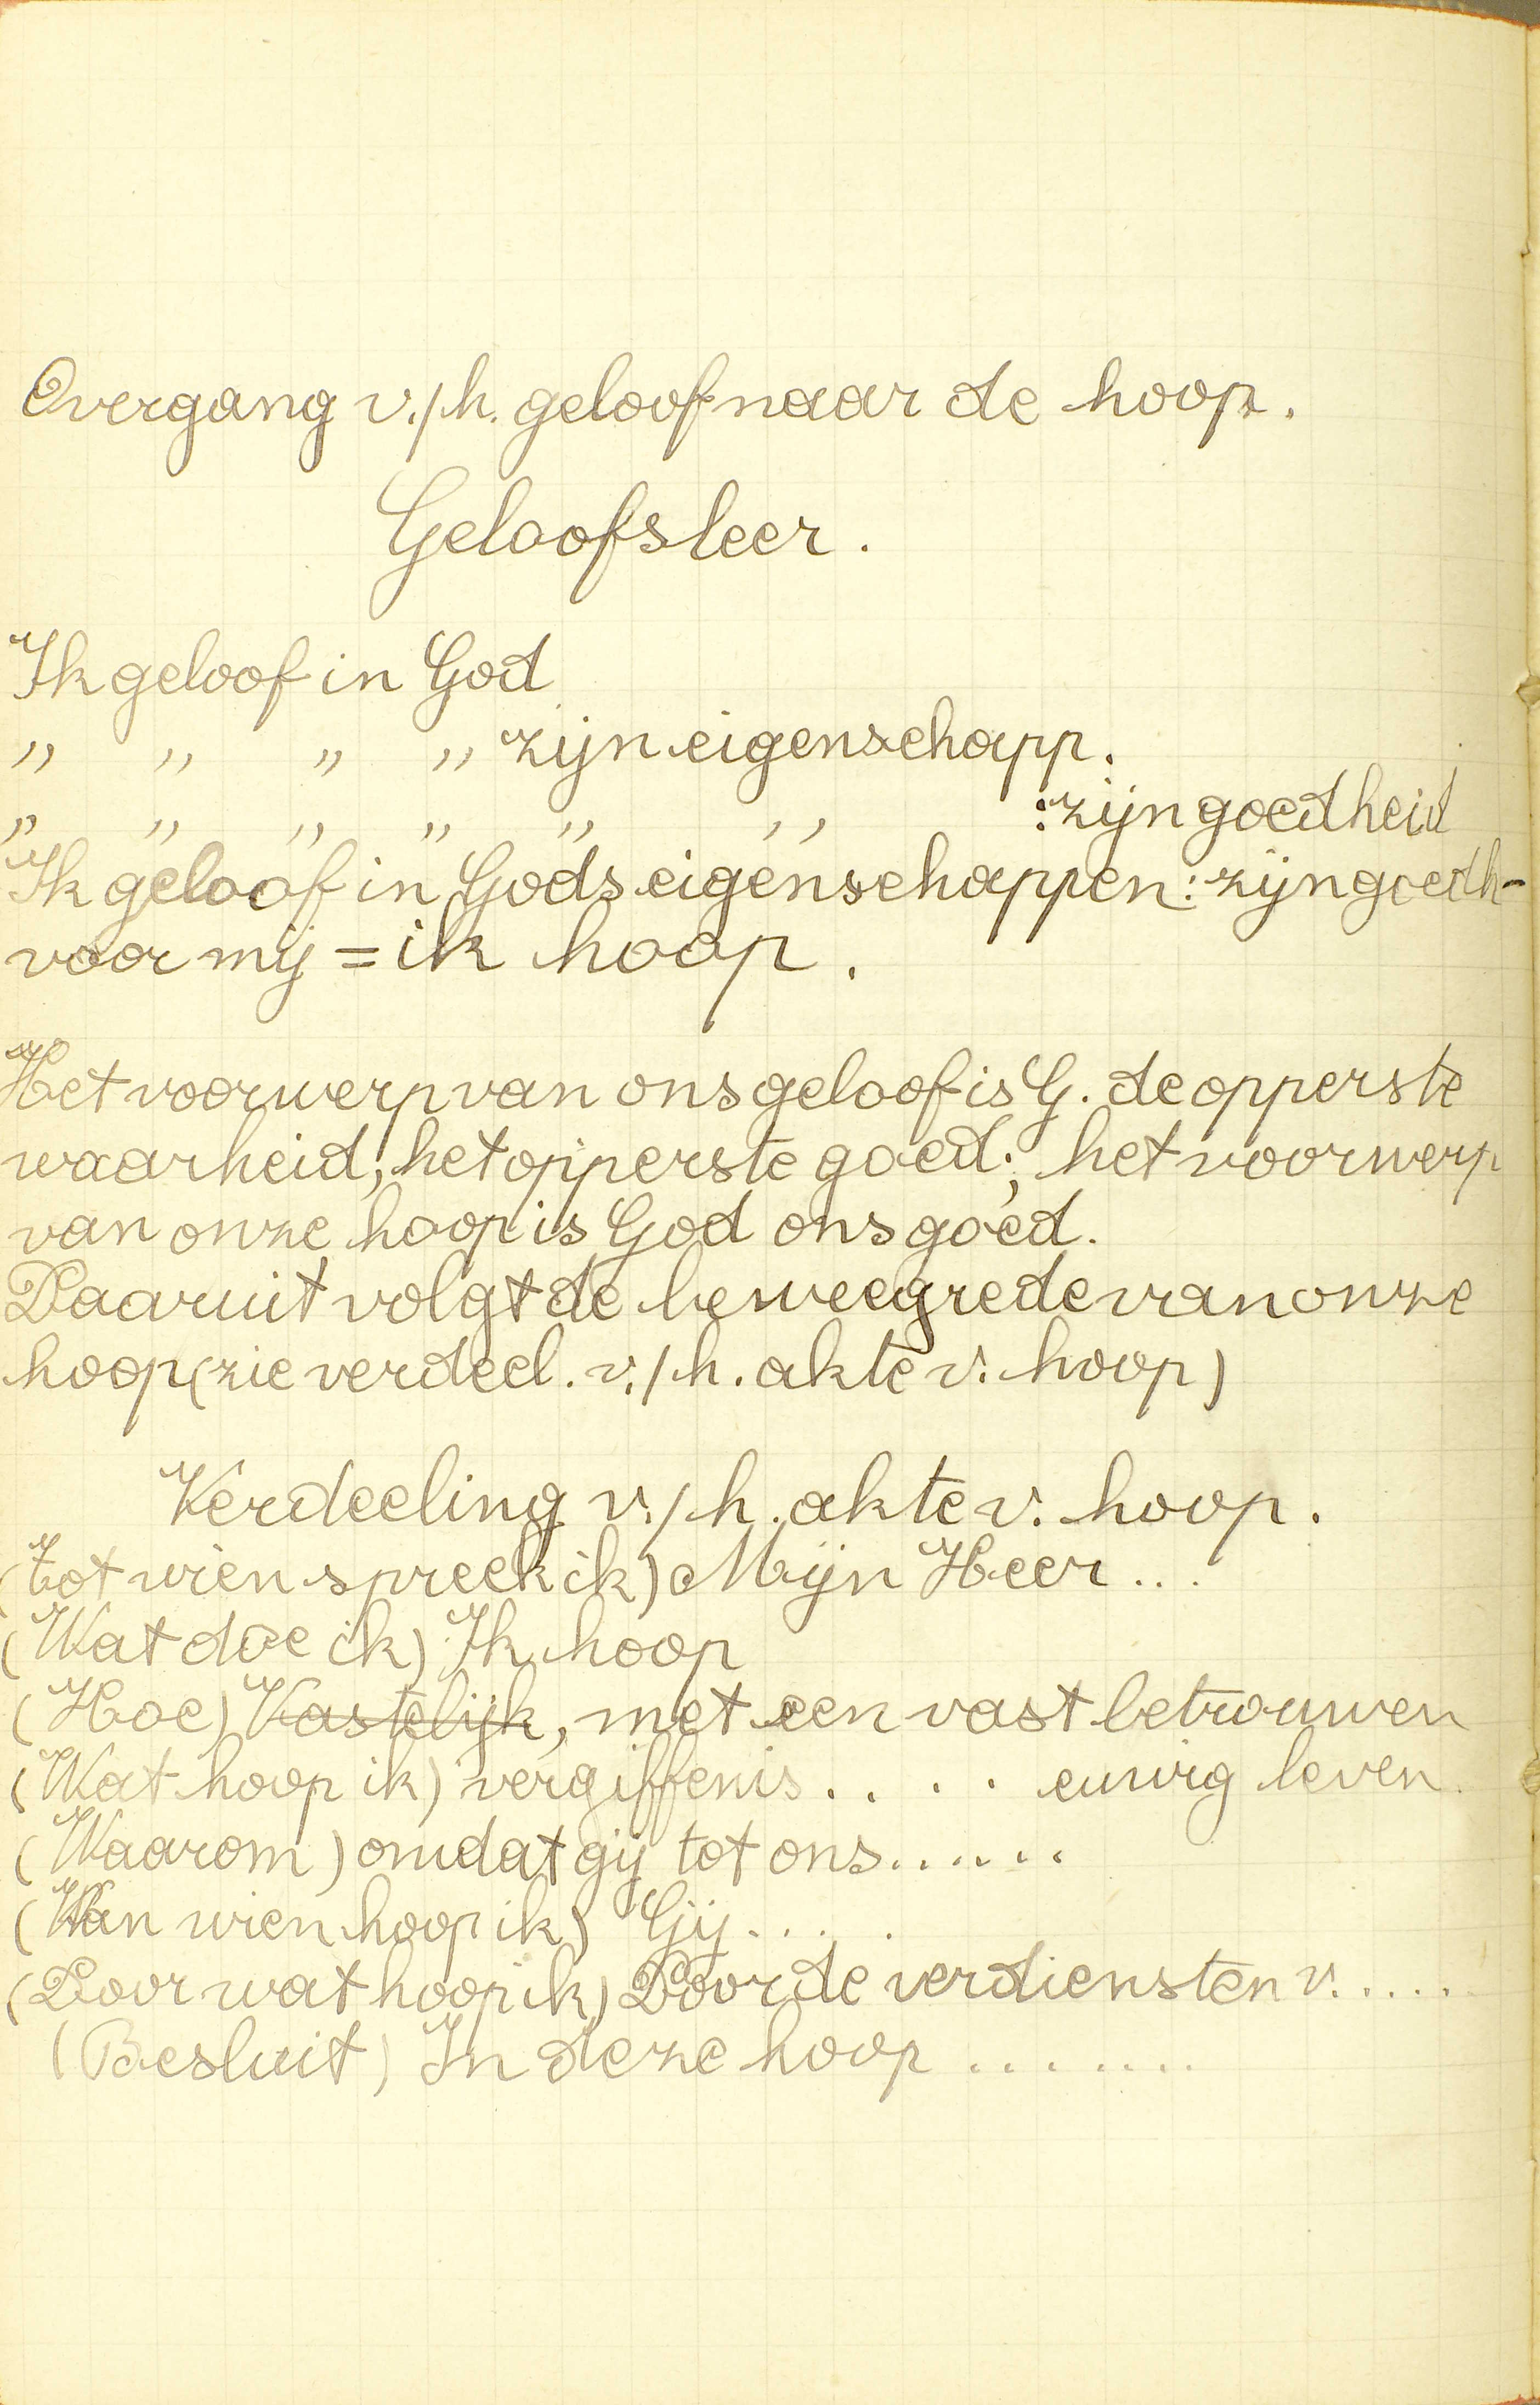 Overgang v./h. geloof naar de hoop.
Geloofsleer.
Ik geloof in God
,, ,, ,, ,, zijn eigenschapp.
,, ,, ,, ,, ,, ,, : zijn goedheid
Ik geloof in Gods eigenschappen: zijn goedh-
voor mij = ik hoop.
Het voorwerp van ons geloof is G. de opperste
waarheid, het opperste goed; het voorwerp
van onze hoop is God ons goed.
Daaruit volgt de beweegrede van onze
hoop (zie verdeel. v./h. akte v. hoop)
Verdeeling v./h. akte v. hoop.
(Tot wien spreek ik) Mijn Heer...
(Wat doe ik) Ik hoop
(Hoe) Vastelijk, met een vast betrouwen
(Wat hoop ik) vergiffenis.... euwig leven
(Waarom) omdat gij tot ons......
(Van wien hoop ik) Gij....
(Door wat hoop ik) Door de verdiensten v.....
(Besluit) In deze hoop.......